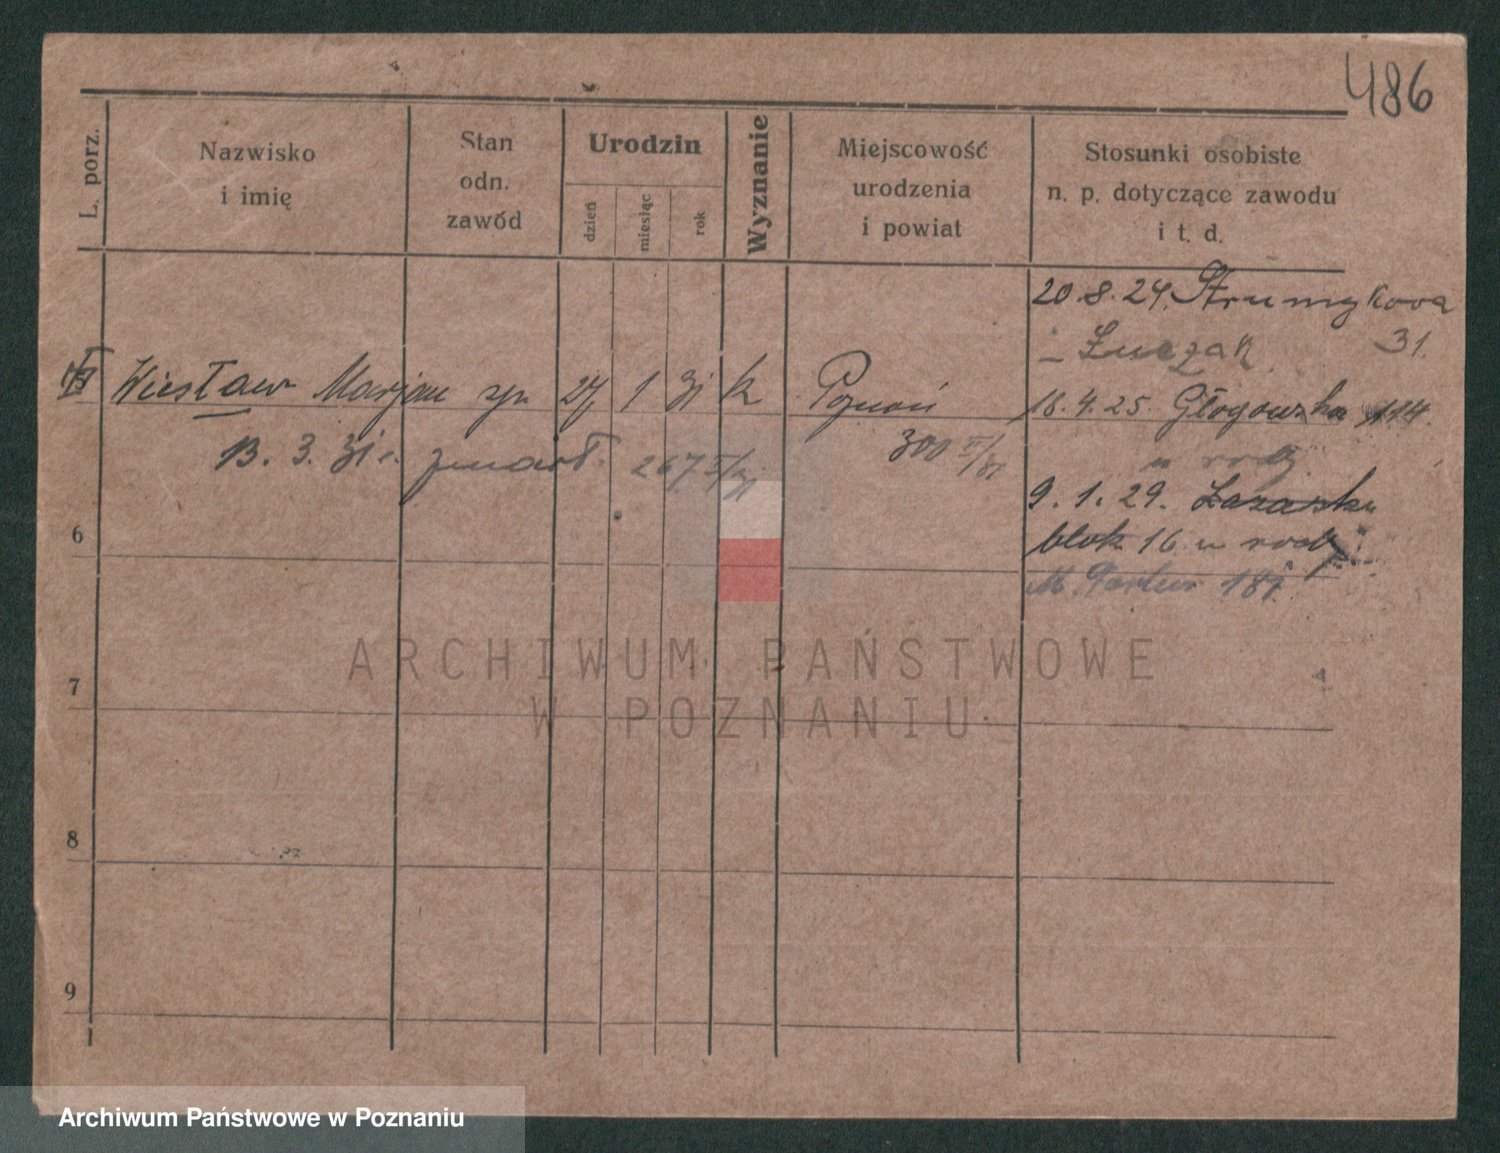 486
L. porz.
Nazwisko
i imię
Stan
odn.
zawód
Urodzin
dzień
miesiąc
rok
Wyznanie
Miejscowość
urodzenia
i powiat
Stosunki osobiste
n. p. dotyczące zawodu
i t. d.
20.8.24. Strumykowa
31.
– Łuczak
Wiesław Marjan syn 27 1 31 k Poznań
18.4.25. Głogowska 114.
u rodz.
13. 3. 31. zmarł. 267
300
9.1.29. Łazarska
blok 16 u rodz.
6
7
8
9
ARCHIWUM PAŃSTWOWE
W POZNANIU
Archiwum Państwowe w Poznaniu